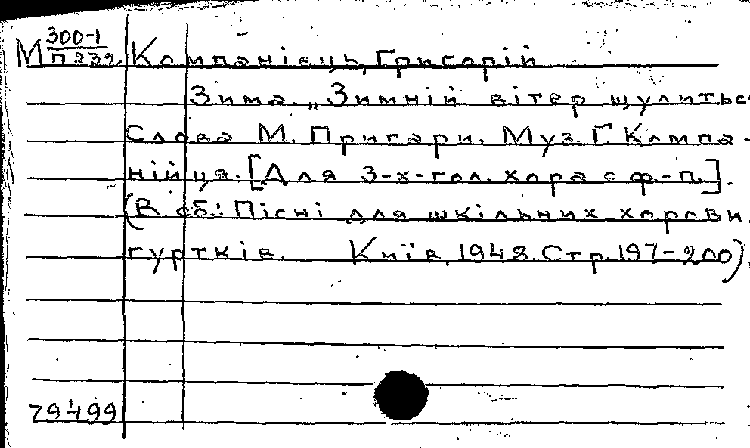 М 300-1
П 332. Компанієць, Григорій
Зима. „Зимній вітер щулиться
Слова М. Пригари. Муз. Г. Компа-
нійця. [Для 3-х-гол. хора с ф-п.].
(В сб.: Пісні для шкільних хорови.
гуртків. Київ, 1948. Стр. 197-200).
79499